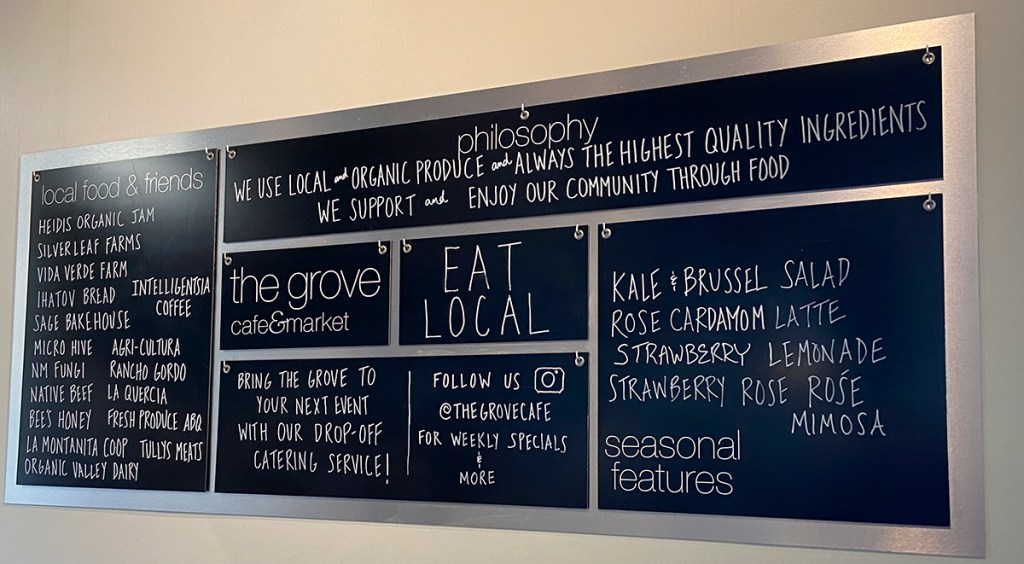 local food & friends
HEIDIS ORGANIC JAM
SILVERLEAF FARMS
VIDA VERDE FARM
IHATOV BREAD
INTELLIGENTSIA
COFFEE
SAGE BAKEHOUSE
MICRO HIVE AGRI-CULTURA
NM FUNGI RANCHO GORDO
NATIVE BEEF LA QUERCIA
BEE'S HONEY FRESH PRODUCE ABQ
LA MONTANITA COOP TULLYS MEATS
ORGANIC VALLEY DAIRY
philosophy
WE USE LOCAL and ORGANIC PRODUCE and ALWAYS THE HIGHEST QUALITY INGREDIENTS
WE SUPPORT and ENJOY OUR COMMUNITY THROUGH FOOD
the grove
cafe&market
EAT
LOCAL
BRING THE GROVE TO
YOUR NEXT EVENT
WITH OUR DROP-OFF
CATERING SERVICE!
FOLLOW US
@THEGROVECAFE
FOR WEEKLY SPECIALS
&
MORE
KALE & BRUSSEL SALAD
ROSE CARDAMOM LATTE
STRAWBERRY LEMONADE
STRAWBERRY ROSE ROSÉ
MIMOSA
seasonal
features